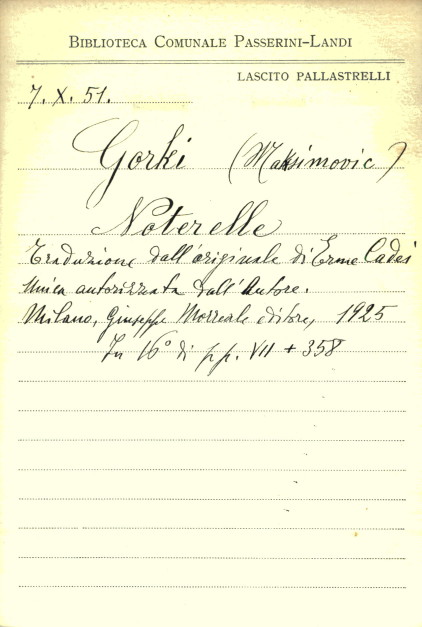 BIBLIOTECA COMUNALE PASSERINI-LANDI
LASCITO PALLASTRELLI
7. X. 51.
Gorki (Maksimovic)
Noterelle
Traduzione dall'originale di Erme Cadei
unica autorizzata dall'Autore.
Milano, Giuseppe Morreale editore, 1925
In 16° di pp. VII + 358